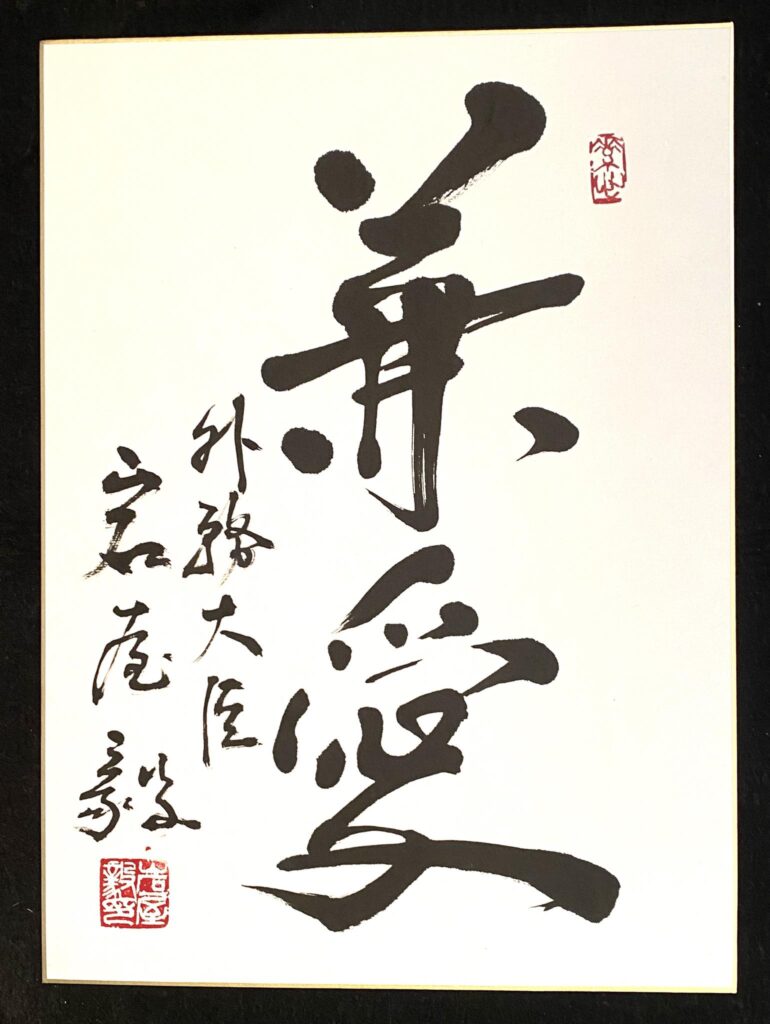 兼愛
外務大臣
岩屋毅
岩屋毅印